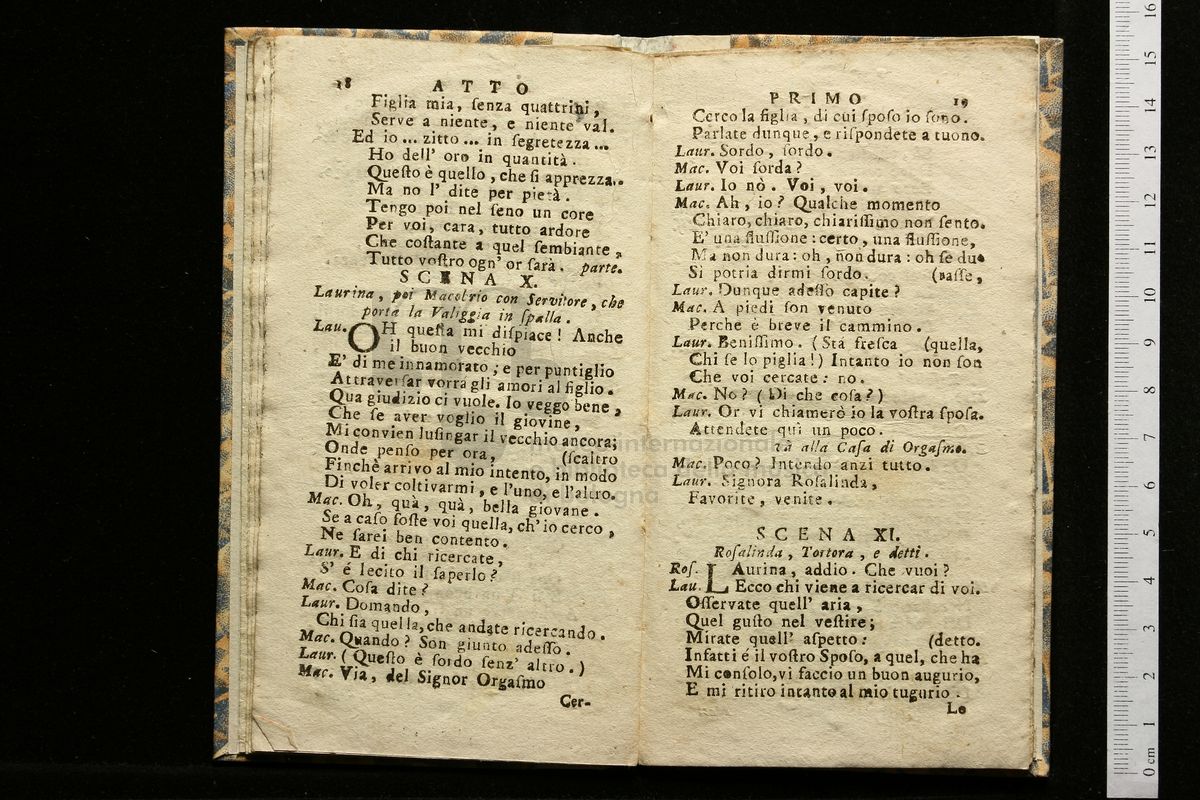 18 ATTO
Figlia mia, ſenza quattrini,
Serve a niente, e niente val.
Ed io ... zitto ... in ſegretezza ...
Ho dell' oro in quantità.
Queſto è quello, che ſi apprezza..
Ma no l' dite per pietà.
Tengo poi nel ſeno un core
Per voi, cara, tutto ardore
Che coſtante a quel ſembiante,
Tutto voſtro ogn' or ſarà. parte.
SCENA X.
Laurina, poi Macobrio con Servitore, che
porta la Valiggia in ſpalla.
Lau. OH queſta mi diſpiace! Anche
il buon vecchio
E' di me innamorato; e per puntiglio
Attraverſar vorrà gli amori al figlio.
Qua giudizio ci vuole. Io veggo bene,
Che ſe aver voglio il giovine,
Mi convien luſingar il vecchio ancora;
Onde penſo per ora, (ſcaltro
Finchè arrivo al mio intento, in modo
Di voler coltivarmi, e l'uno, e l'altro.
Mac. Oh, quà, quà, bella giovane.
Se a caſo foſte voi quella, ch'io cerco,
Ne ſarei ben contento.
Laur. E di chi ricercate,
S' é lecito il ſaperlo?
Mac. Coſa dite?
Laur. Domando,
Chi ſia quella, che andate ricercando.
Mac. Quando? Son giunto adeſſo.
Laur. (Queſto è ſordo ſenz' altro.)
Mac. Via, del Signor Orgaſmo
Cer-
PRIMO 19
Cerco la figlia, di cui ſpoſo io ſono.
Parlate dunque, e riſpondete a tuono.
Laur. Sordo, ſordo.
Mac. Voi ſorda?
Laur. Io nò. Voi, voi.
Mac. Ah, io? Qualche momento
Chiaro, chiaro, chiariſſimo non ſento.
E' una fluſſione: certo, una fluſſione,
Ma non dura: oh, non dura: oh ſe du-
Si potria dirmi ſordo. (raſſe,
Laur. Dunque adeſſo capite?
Mac. A piedi ſon venuto
Perche è breve il cammino.
Laur. Beniſſimo. (Sta freſca (quella,
Chi ſe lo piglia!) Intanto io non ſon
Che voi cercate: no.
Mac. No? (Di che coſa?)
Laur. Or vi chiamerò io la voſtra ſpoſa.
Attendete quì un poco.
và alla Caſa di Orgaſmo.
Mac. Poco? Intendo anzi tutto.
Laur. Signora Roſalinda,
Favorite, venite.
SCENA XI.
Roſalinda, Tortora, e detti.
Roſ. LAurina, addio. Che vuoi?
Lau. Ecco chi viene a ricercar di voi.
Oſſervate quell' aria,
Quel guſto nel veſtire;
Mirate quell' aſpetto: (detto.
Infatti é il voſtro Spoſo, a quel, che ha
Mi conſolo, vi faccio un buon augurio,
E mi ritiro intanto al mio tugurio.
Lo
internazionale
0 cm 1 2 3 4 5 6 7 8 9 10 11 12 13 14 15 16